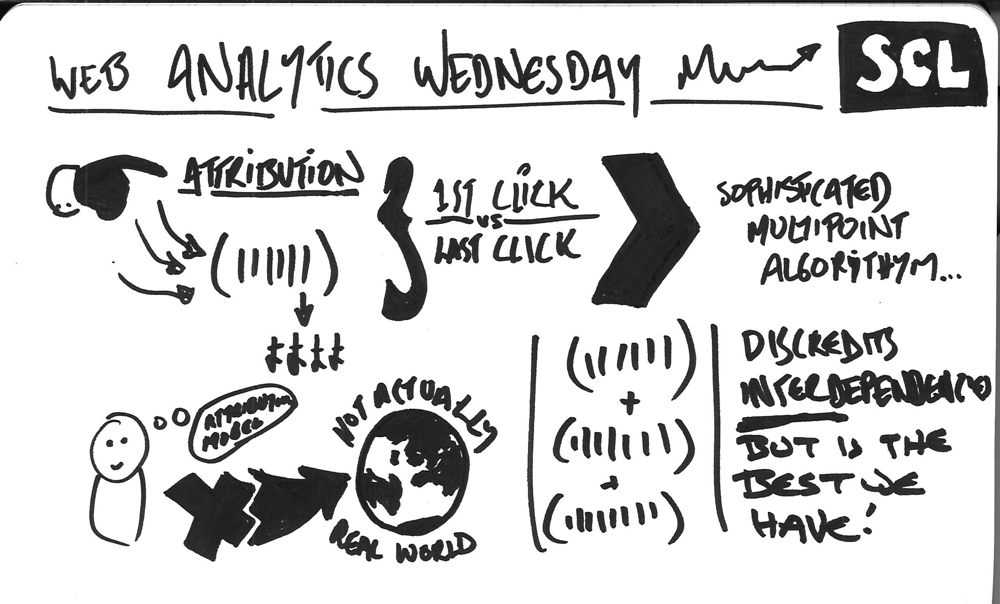 WEB ANALYTICS WEDNESDAY
SCL
ATTRIBUTION
1ST CLICK
VS
LAST CLICK
SOPHISTICATED
MULTIPOINT
ALGORITHYM...
ATTRIBUTION
MODEL
NOT ACTUALLY
REAL WORLD
+
+
DISCREDITS
INTERDEPENDENCE
BUT IS THE
BEST WE
HAVE!